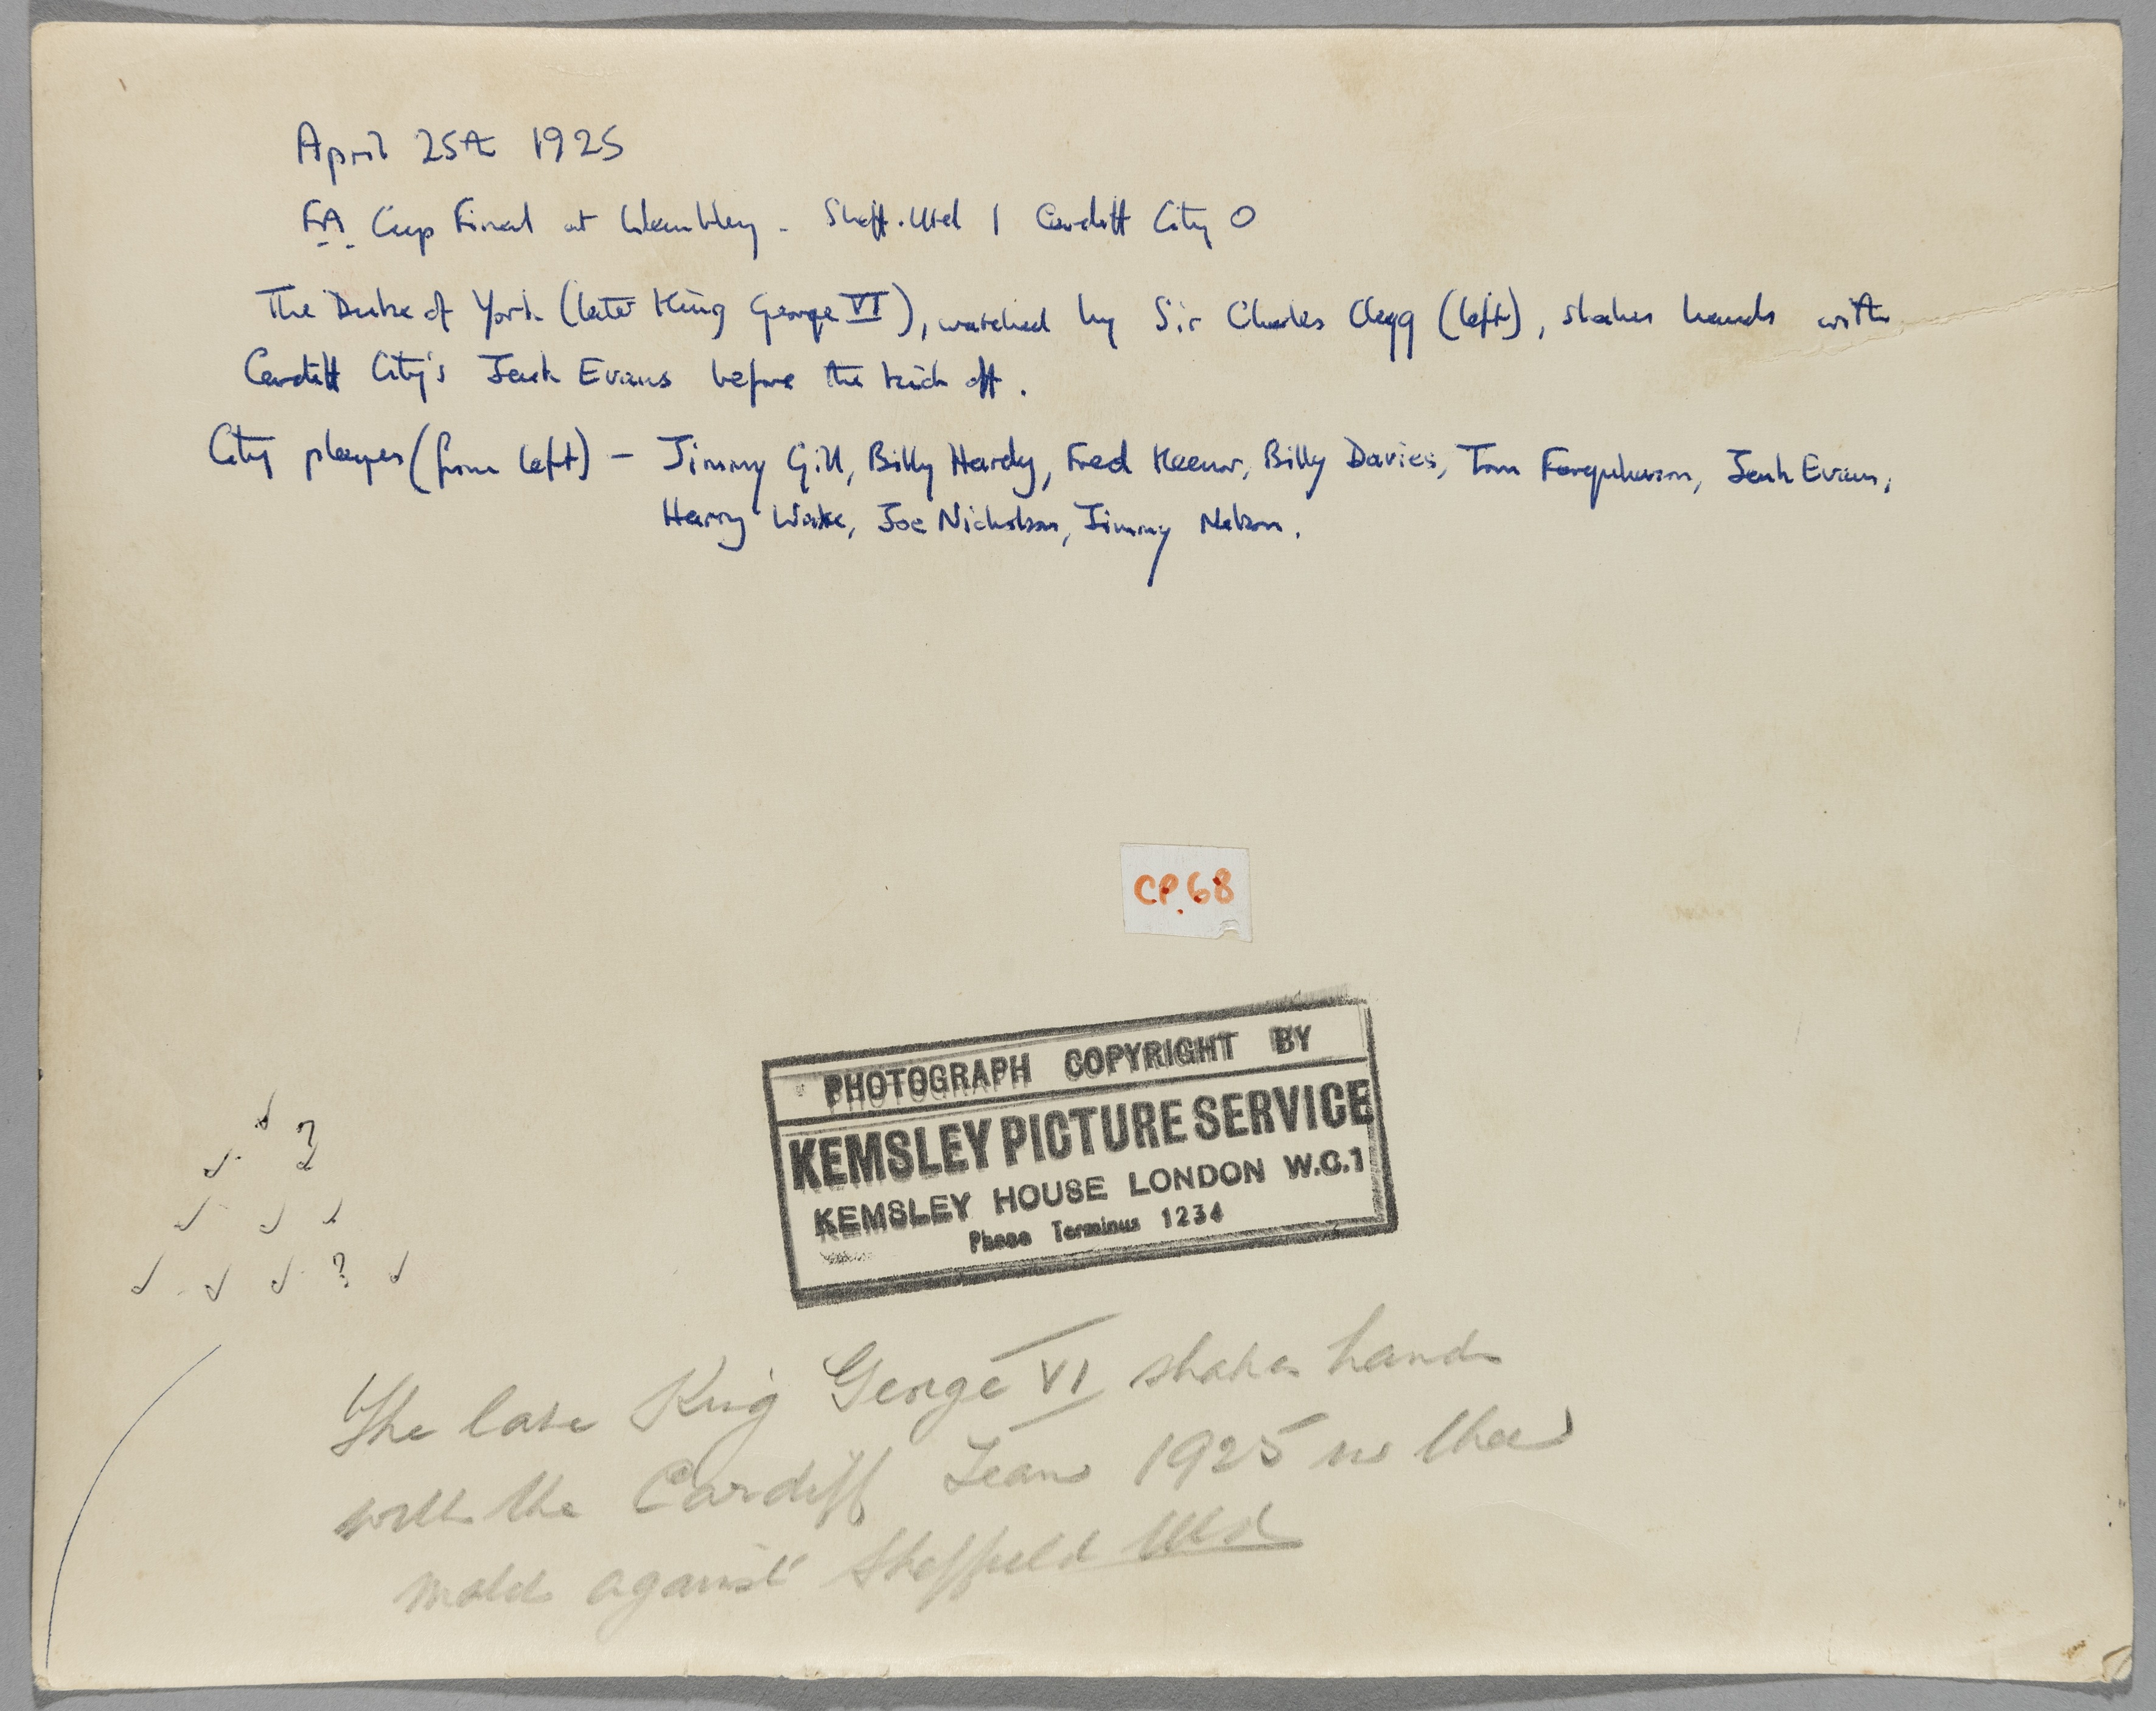 April 25th 1925
FA Cup Final at Wembley - Sheff. Utd 1 Cardiff City 0
The Duke of York (later King George VI), watched by Sir Charles Clegg (left), shakes hands with
Cardiff City's Jack Evans before the kick off.
City players (from left) - Jimmy Gill, Billy Hardy, Fred Keenor, Billy Davies, Tom Farquharson, Jack Evans,
Harry Wake, Joe Nicholson, Jimmy Nelson.
CP.68
PHOTOGRAPH COPYRIGHT BY
KEMSLEY PICTURE SERVICE
KEMSLEY HOUSE LONDON W.C.1
Phone Terminus 1234
?
?
The late King George VI shakes hands
with the Cardiff Team 1925 in their
match against Sheffield Utd